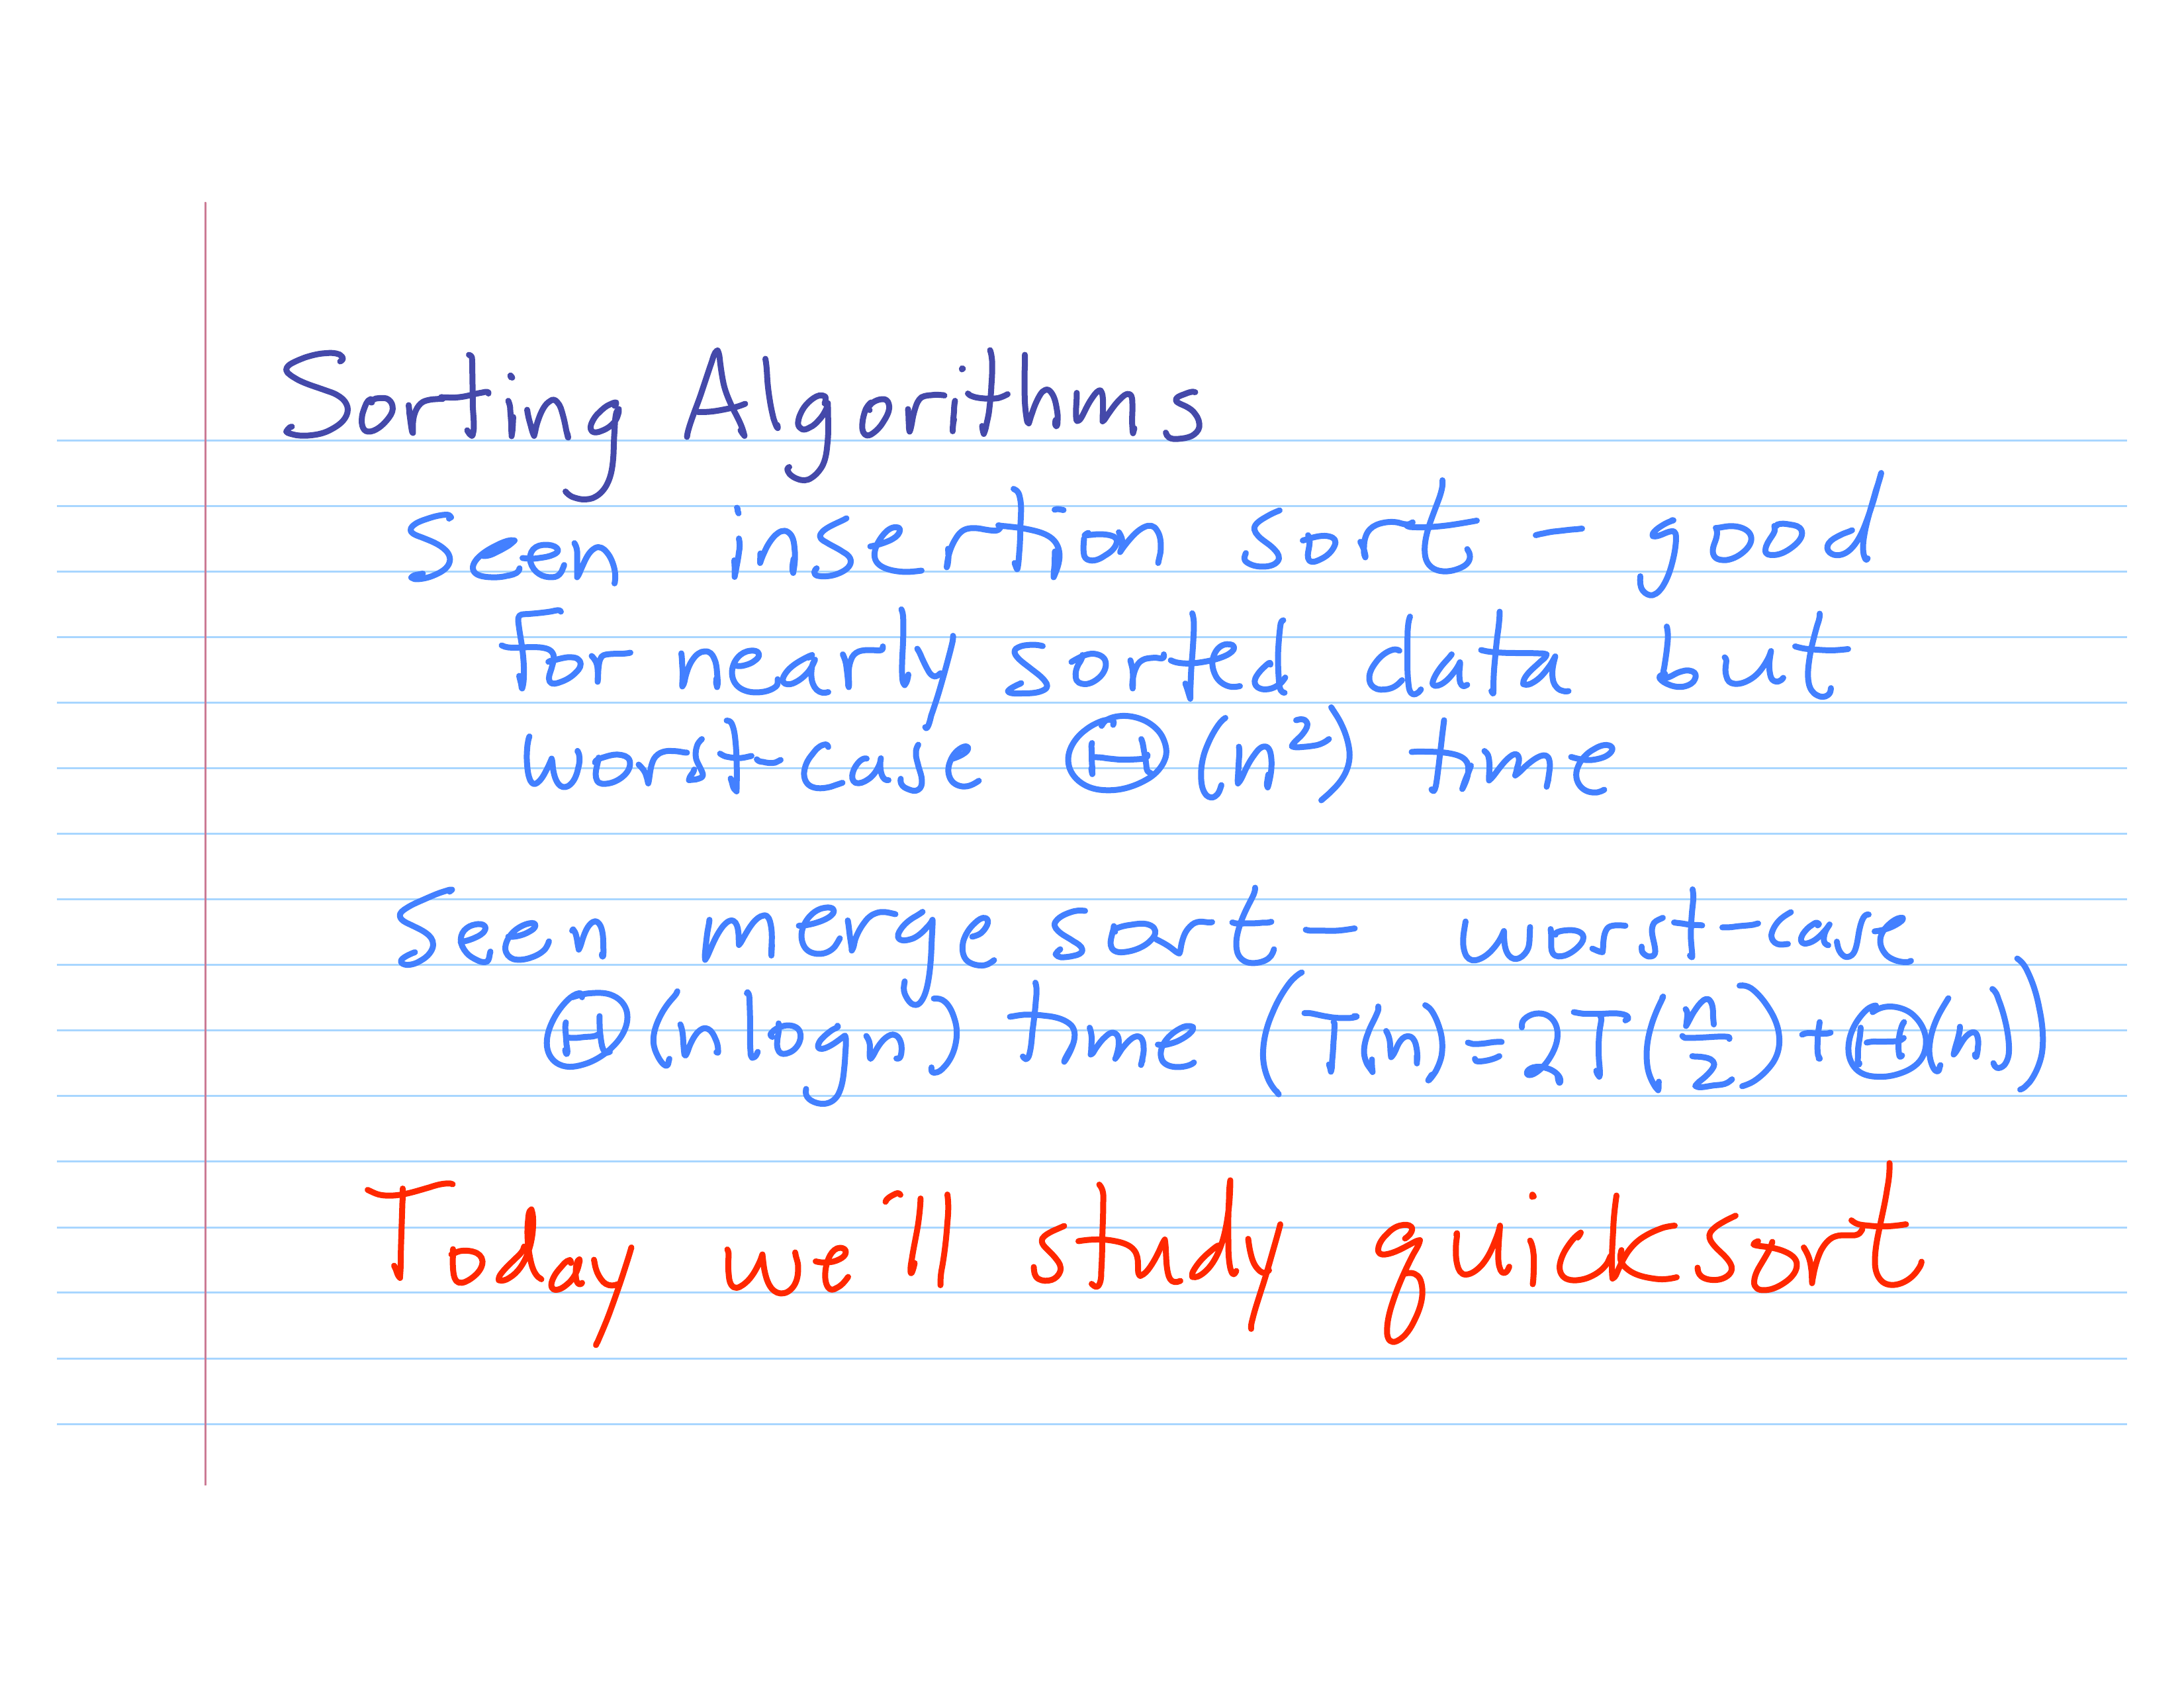 Sorting Algorithms
Seen insertion sort - good
for nearly sorted data but
worst-case Θ(n²) time
Seen merge sort - worst-case
Θ(n log n) time (T(n) = 2T(n/2) + Θ(n))
Today we'll study quicksort